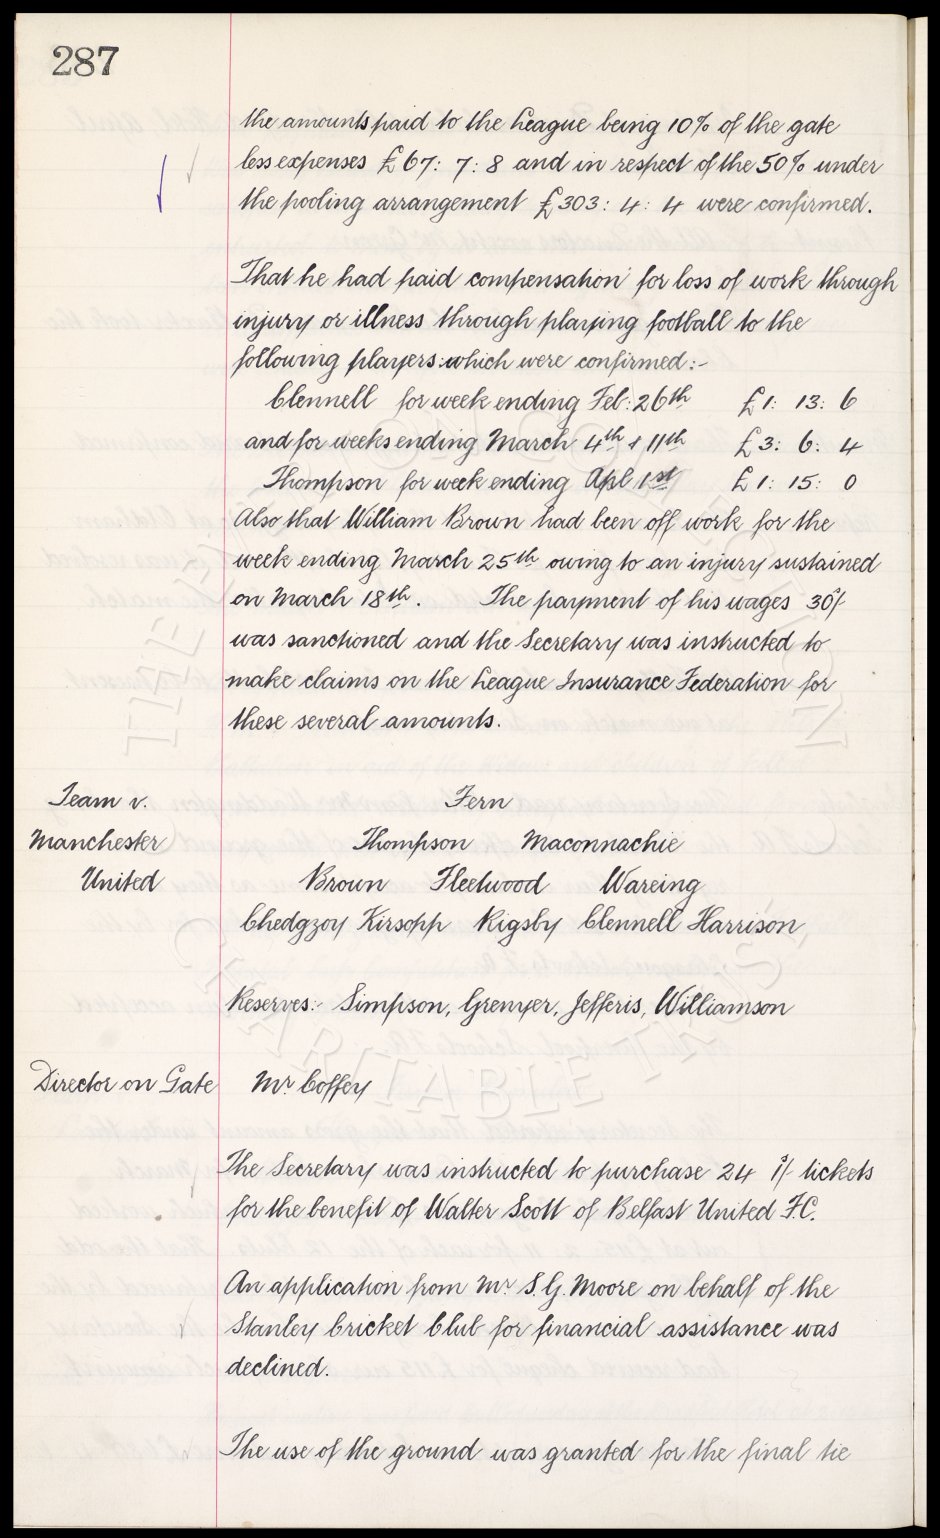 287
the amounts paid to the League being 10% of the gate
less expenses £67: 7: 8 and in respect of the 50% under
the pooling arrangement £303: 4: 4 were confirmed.
That he had paid compensation for loss of work through
injury or illness through playing football to the
following players: which were confirmed:-
Clennell for week ending Feb: 26th £1: 13: 6
and for weeks ending March 4th & 11th £3: 6: 4
Thompson for week ending Apl 1st £1: 15: 0
Also that William Brown had been off work for the
week ending March 25th owing to an injury sustained
on March 18th. The payment of his wages 30s/-
was sanctioned and the Secretary was instructed to
make claims on the League Insurance Federation for
these several amounts.
Team v. Fern
Manchester Thompson Maconnachie
United Brown Fleetwood Wareing
Chedgzoy Kirsopp Rigsby Clennell Harrison
Reserves:- Simpson, Grenyer, Jefferis, Williamson
Director on Gate Mr. Coffey
The Secretary was instructed to purchase 24 1s/- tickets
for the benefit of Walter Scott of Belfast United F.C.
An application from Mr S. G. Moore on behalf of the
Stanley Cricket Club for financial assistance was
declined.
The use of the ground was granted for the final tie
THE EVERTON COLLECTION
CHARITABLE TRUST